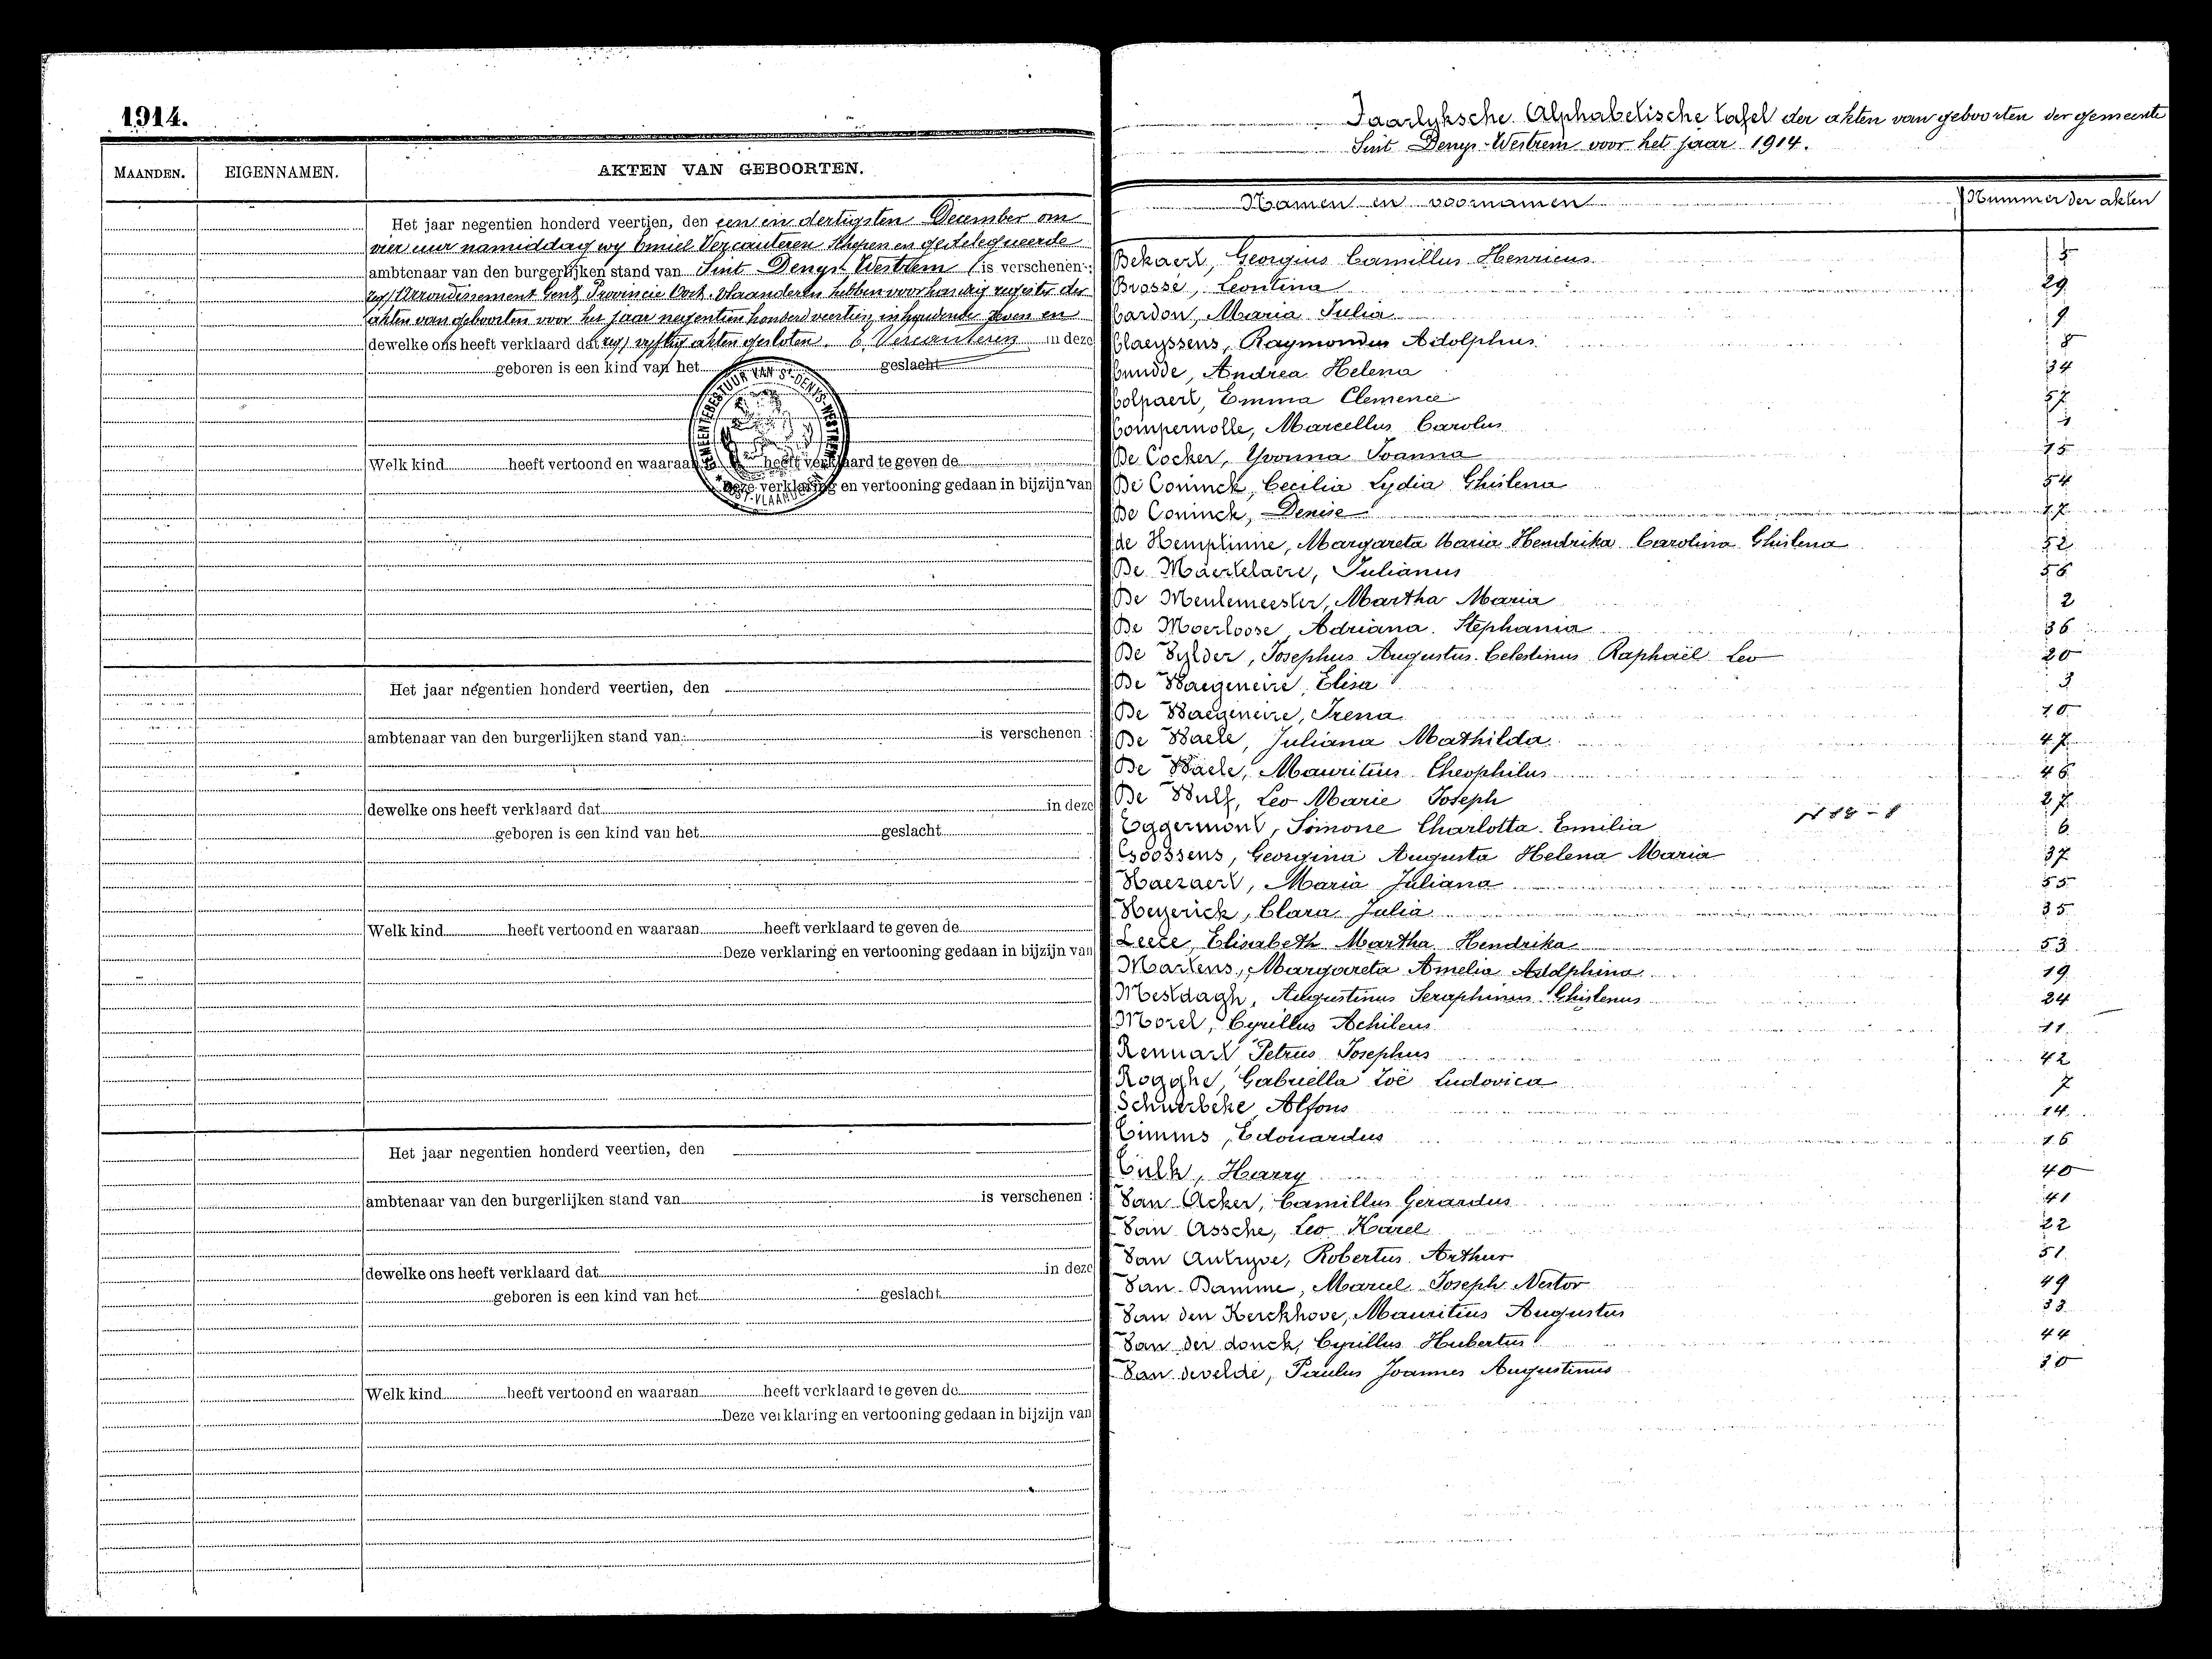 1914.
MAANDEN. EIGENNAMEN. AKTEN VAN GEBOORTEN.
Het jaar negentien honderd veertien, den een en dertigsten December om
vier uur namiddag wy Emiel Vercauteren Schepen en gedelegueerde
ambtenaar van den burgerlijken stand van Sint Denys Westrem is verschenen:
Arrondissement Gent Provincie Oost-Vlaanderen hebben voorhandig register der
akten van geboorten voor het jaar negentien honderd veertien, inhoudende zeven en
dewelke ons heeft verklaard dat vyftig akten gesloten. E. Vercauteren in deze
geboren is een kind van het geslacht
Welk kind heeft vertoond en waaraan heeft verklaard te geven de
Deze verklaring en vertooning gedaan in bijzijn van
Het jaar negentien honderd veertien, den
ambtenaar van den burgerlijken stand van is verschenen:
dewelke ons heeft verklaard dat in deze
geboren is een kind van het geslacht
Welk kind heeft vertoond en waaraan heeft verklaard te geven de
Deze verklaring en vertooning gedaan in bijzijn van
Het jaar negentien honderd veertien, den
ambtenaar van den burgerlijken stand van is verschenen:
dewelke ons heeft verklaard dat in deze
geboren is een kind van het geslacht
Welk kind heeft vertoond en waaraan heeft verklaard te geven de
Deze verklaring en vertooning gedaan in bijzijn van
Jaarlyksche Alphabetische tafel der akten van geboorten der gemeente
Sint Denys-Westrem voor het jaar 1914.
Namen en voornamen Nummer der akten
Bekaert, Georgius Camillus Henricus
Brossé, Leontina 29
Cardon, Maria Julia 9
Claeyssens, Raymondus Adolphus 8
Andrea Helena 34
Colpaert, Emma Clemence 57
Compernolle, Marcellus Carolus
De Cocker, Yvonna Joanna
De Coninck, Cecilia Lydia Ghislena 54
De Coninck, Denise
de Hemptinne, Margareta Maria Hendrika Carolina Ghislena 52
De Maertelaere, Julianus
De Meulemeester, Martha Maria 2
De Moerloose, Adriana Stephania 36
De Vylder, Josephus Augustus Celestinus Raphaël Leo 20
De Waegeneire, Elisa 3
De Waegeneire, Irena 10
De Waele, Juliana Mathilda 47
De Waele, Mauritius Theophilus
De Wulf, Leo Marie Joseph 27
Eggermont, Simone Charlotta Emilia 6
Goossens, Georgina Augusta Helena Maria 37
Haezaert, Maria Juliana 55
Heyerick, Clara Julia 35
Leece, Elisabeth Martha Hendrika 53
Martens, Margareta Amelia Adolphina 19
Mestdagh, Augustinus Seraphinus Ghislenus 24
Morel, Cyrillus Achileus 11
Rennart Petrus Josephus 42
Rogghe, Gabriella Zoë Ludovica 7
Schuerbeke Alfons 14
Timms, Edouardus 16
Tuck, Harry 40
Van Acker, Camillus Gerardus 41
Van Assche, Leo Karel 22
Van Autryve, Robertus Arthur 51
Van Damme, Marcel Joseph Nestor 49
Van den Kerckhove, Mauritius Augustus 33
Van der donck, Cyrillus Hubertus 44
Van develde, Paulus Joannes Augustinus 30